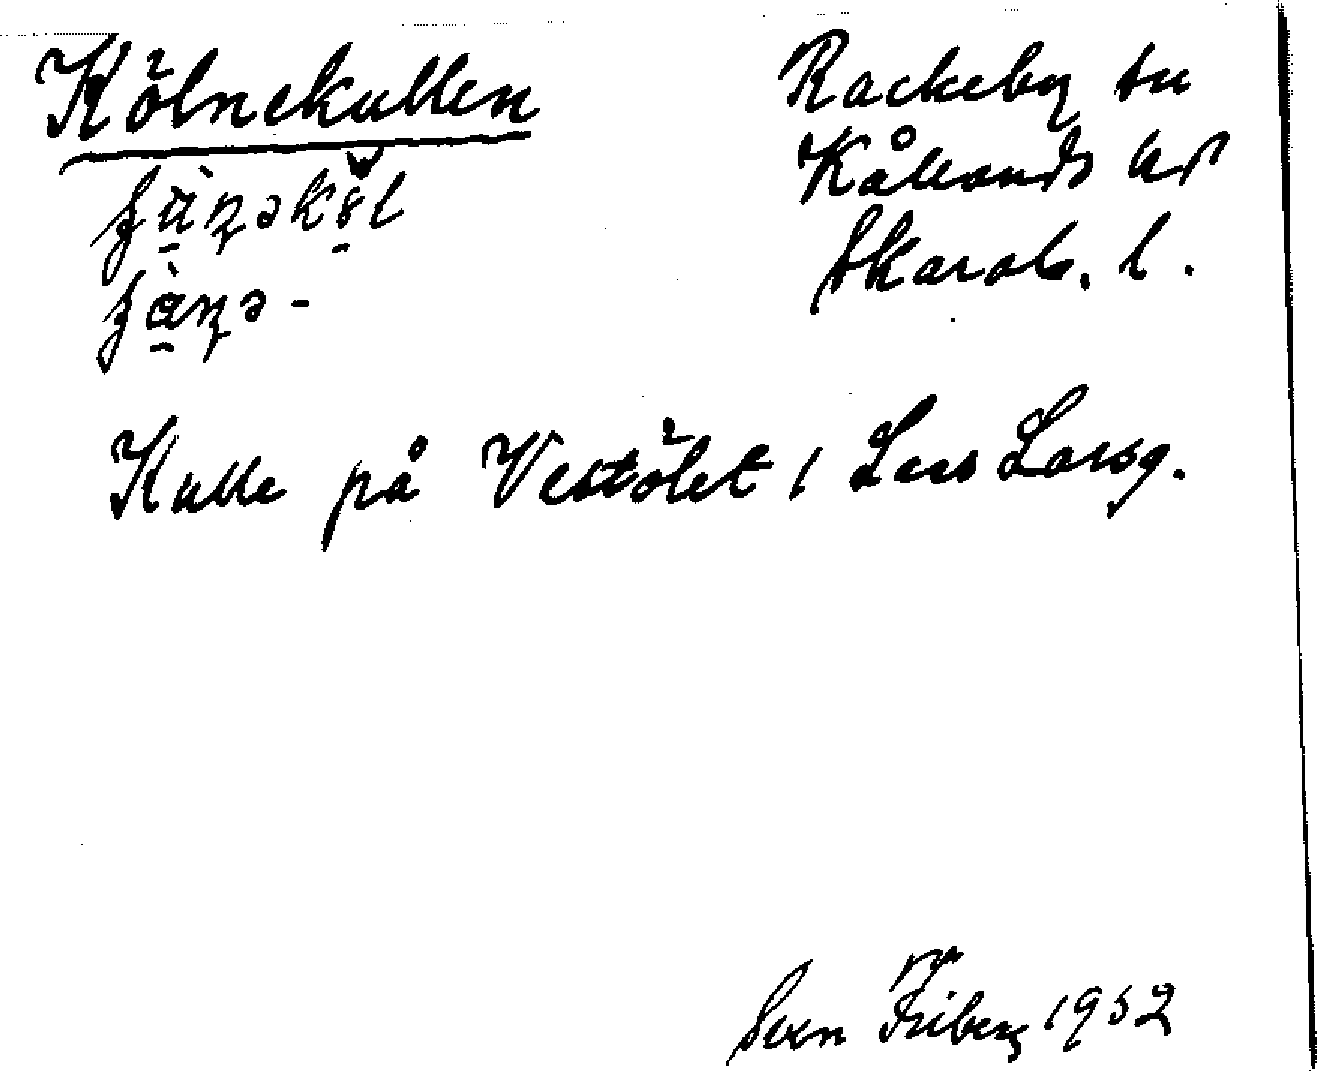 Kölnekullen
Rackeby sn
Kållands hd
Skarab. l.
Kulle på Vestölet, Lars Larsg.
Sven Friberg 1952